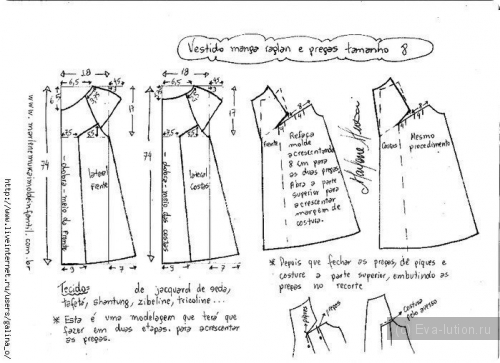 Vestido manga raglan e pregas tamanho 8
18
6,5
4,5
17
74
3,5
3,5
dobra - meio da frente
lateral frente
9
7
18
6,5
4,5
17
74
3,5
3,5
dobra - meio das costas
lateral costas
9
7
Frente
4
4
8
Refaça
molde
acrescentando
8 cm para
as duas pregas.
Abra a parte
superior para
acrescentar
margem de
costura.
Marlene Mukai
Costas
4
4
8
Mesmo
procedimento
Tecidos de jacquard de seda,
tafetá, shantung, zibeline, tricoline...
* Esta é uma modelagem que terá que
fazer em duas etapas para acrescentar
as pregas.
* Depois que fechar as pregas, dê piques e
costure a parte superior, embutindo as
pregas no recorte
piques
pregas
Costura
pelo avesso
www.marlenemukaimoldeinfantil.com.br
http://www.liveinternet.ru/users/galina_o/
(c) Eva-lution.ru